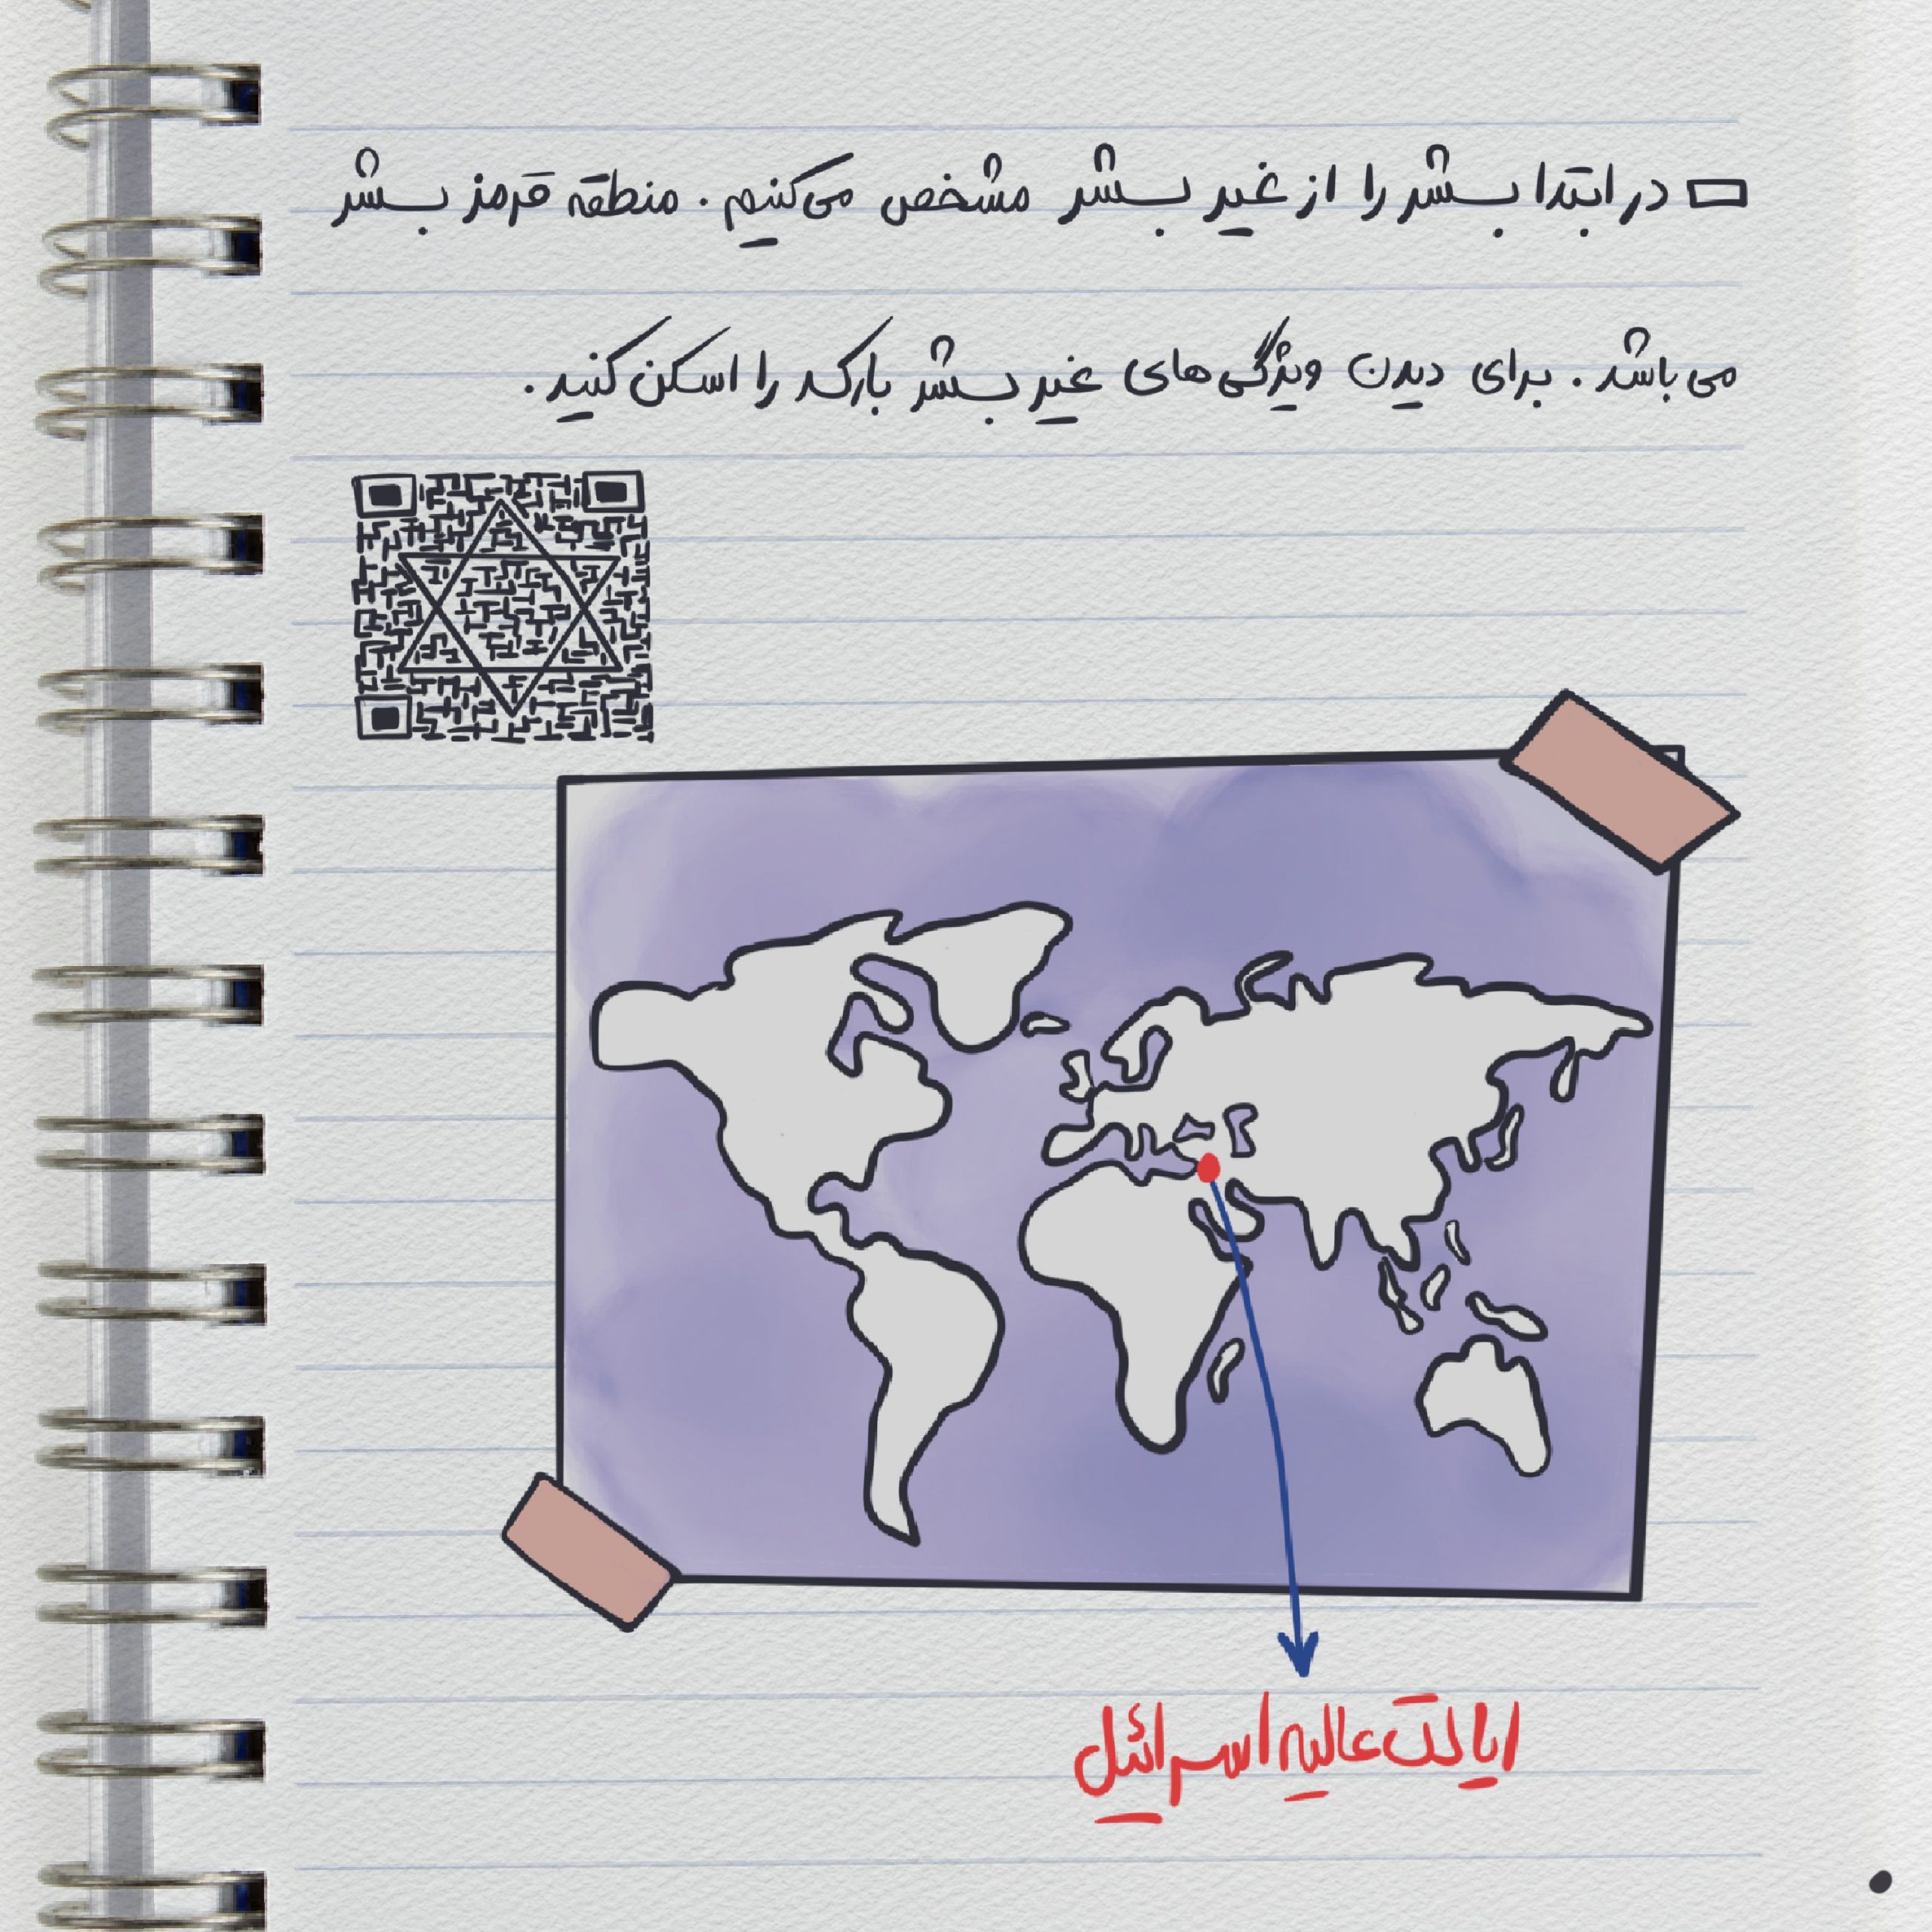 در ابتدا بشر را از غیر بشر مشخص می‌کنیم. منطقه قرمز بشر
می باشد. برای دیدن ویژگی های غیر بشر بارکد را اسکن کنید.
ایالت عالیه اسرائیل